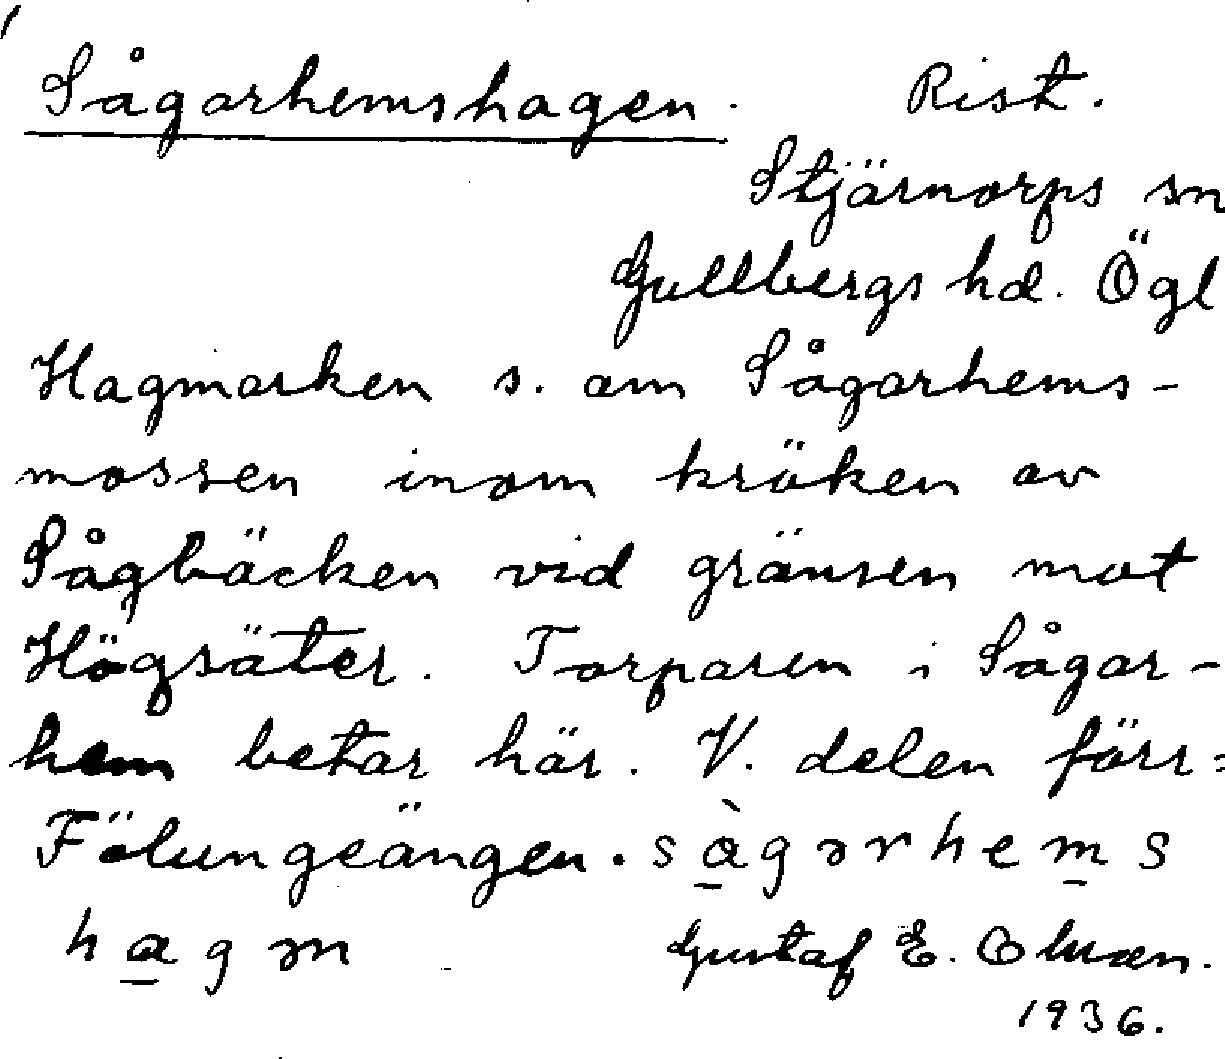 Sågarhemshagen. Rist.
Stjärnorps sn
Gullbergs hd. Ögl
Hagmarken s. om Sågarhems-
mossen inom kröken av
Sågbäcken vid gränsen mot
Högsäter. Torparen i Sågar-
hem betar här. V. delen förr =
Fölungeängen. sàgarhems
hagən Gustaf E. Olsson.
1936.